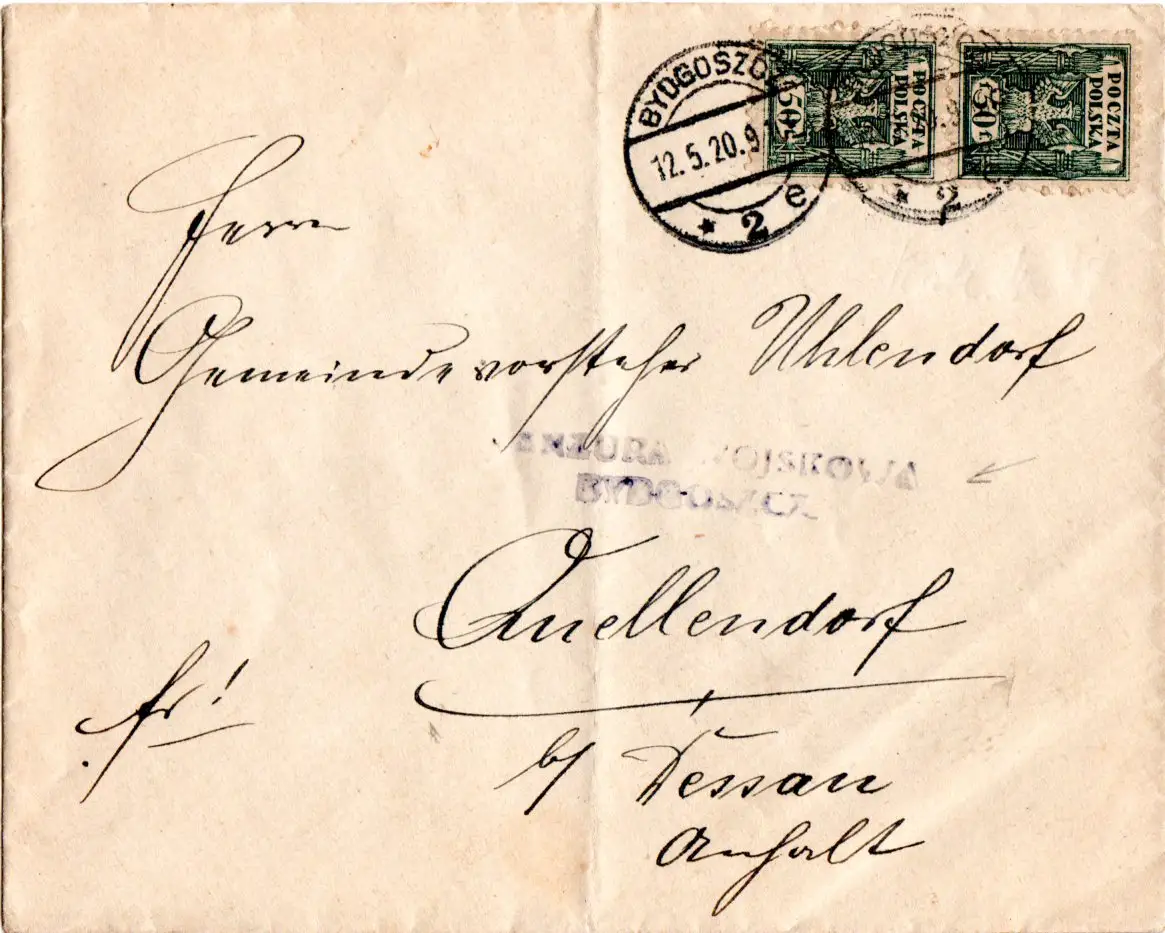 BYDGOSZCZ
12.5.20.9
* 2 e
* 2 e
POCZTA
POLSKA
50
POCZTA
POLSKA
50
Herrn
Gemeindevorsteher Uhlendorf
ENZURA WOJSKOWA
BYDGOSZCZ
Quellendorf
fr!
b/ Dessau
Anhalt